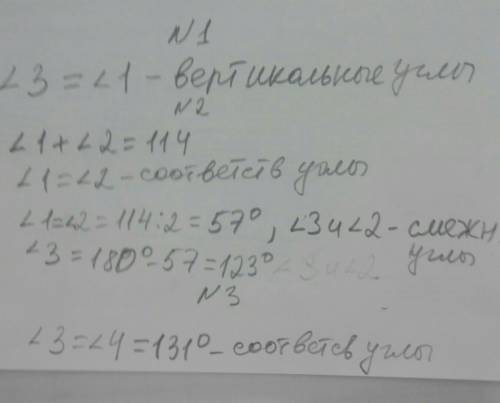 N1
∠3 = ∠1 - вертикальные углы
N2
∠1 + ∠2 = 114
∠1 = ∠2 - соответств углы
∠1=∠2 = 114:2 = 57°, ∠3 и ∠2 - смежн углы
∠3 = 180° - 57 = 123° ∠3 и ∠2
N3
∠3 = ∠4 = 131° - соответсв углы